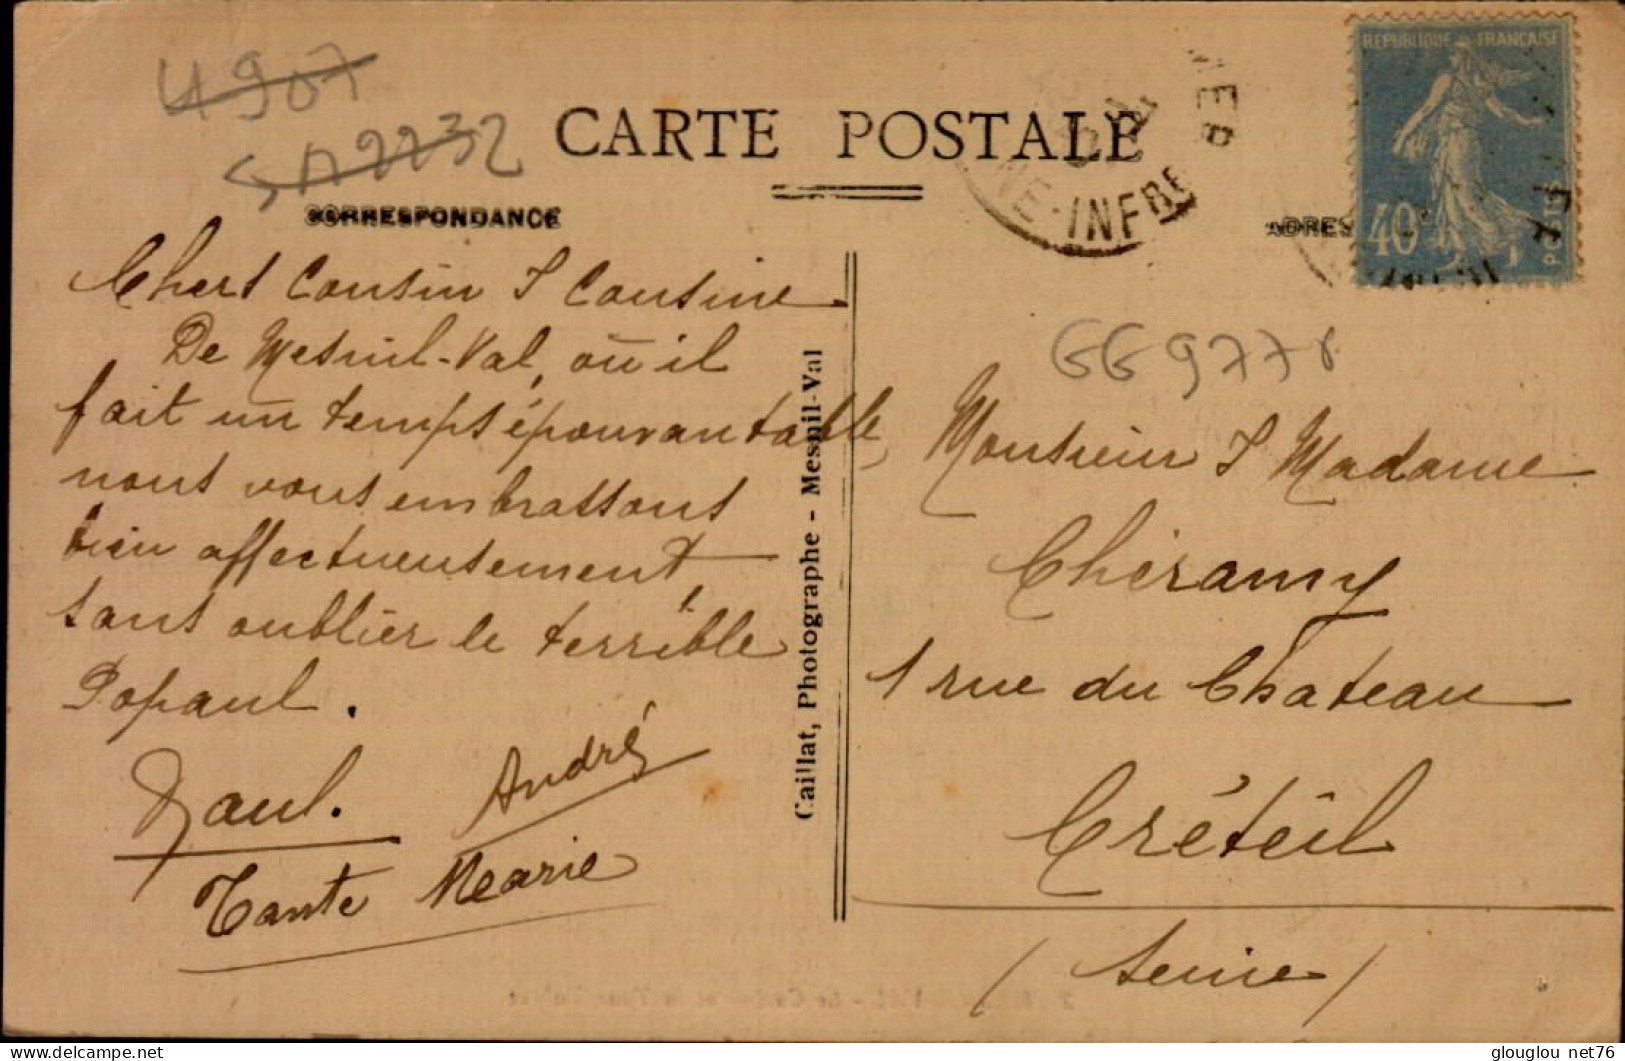 4907
572232
CARTE POSTALE
CORRESPONDANCE
NE-INFRE
MER
REPUBLIQUE FRANÇAISE
40
POSTES
ADRES
Chers Cousin & Cousine
De Mesnil-Val, où il
fait un temps épouvantable,
nous vous embrassons
bien affectueusement,
sans oublier le terrible
Popaul.
Paul. André
Tante Marie
Caillat, Photographe - Mesnil-Val
669778
Monsieur & Madame
Chéramy
1 rue du Chateau
Créteil
(Seine)
glouglou net76